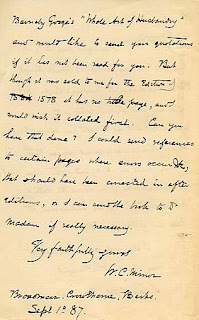 Barnaby Googe's "Whole Art of Husbandry"
and would like to send you quotations
if it has not been read for you. But
though it was sold to me for the Edition
1578 it has no title page, and
would wish it collated first. Can you
have this done? I could send references
to certain pages where errors occurred,
that should have been corrected in after
editions, or I can send the book to D
Madam if really necessary.
Very faithfully yours
W. C. Minor
Broadmoor, Crowthorne, Berks.
Sept 1st 87.